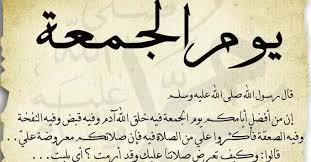 يوم الجمعة
قال رسول الله صلى الله عليه وسلم
إن من أفضل أيامكم يوم الجمعة فيه خلق الله آدم وفيه قبض وفيه النفخة
وفيه الصعقة فأكثروا علي من الصلاة فيه فإن صلاتكم معروضة علي ..
قالوا: وكيف تعرض صلاتنا عليك وقد أرمت ؟ أي بليت ...